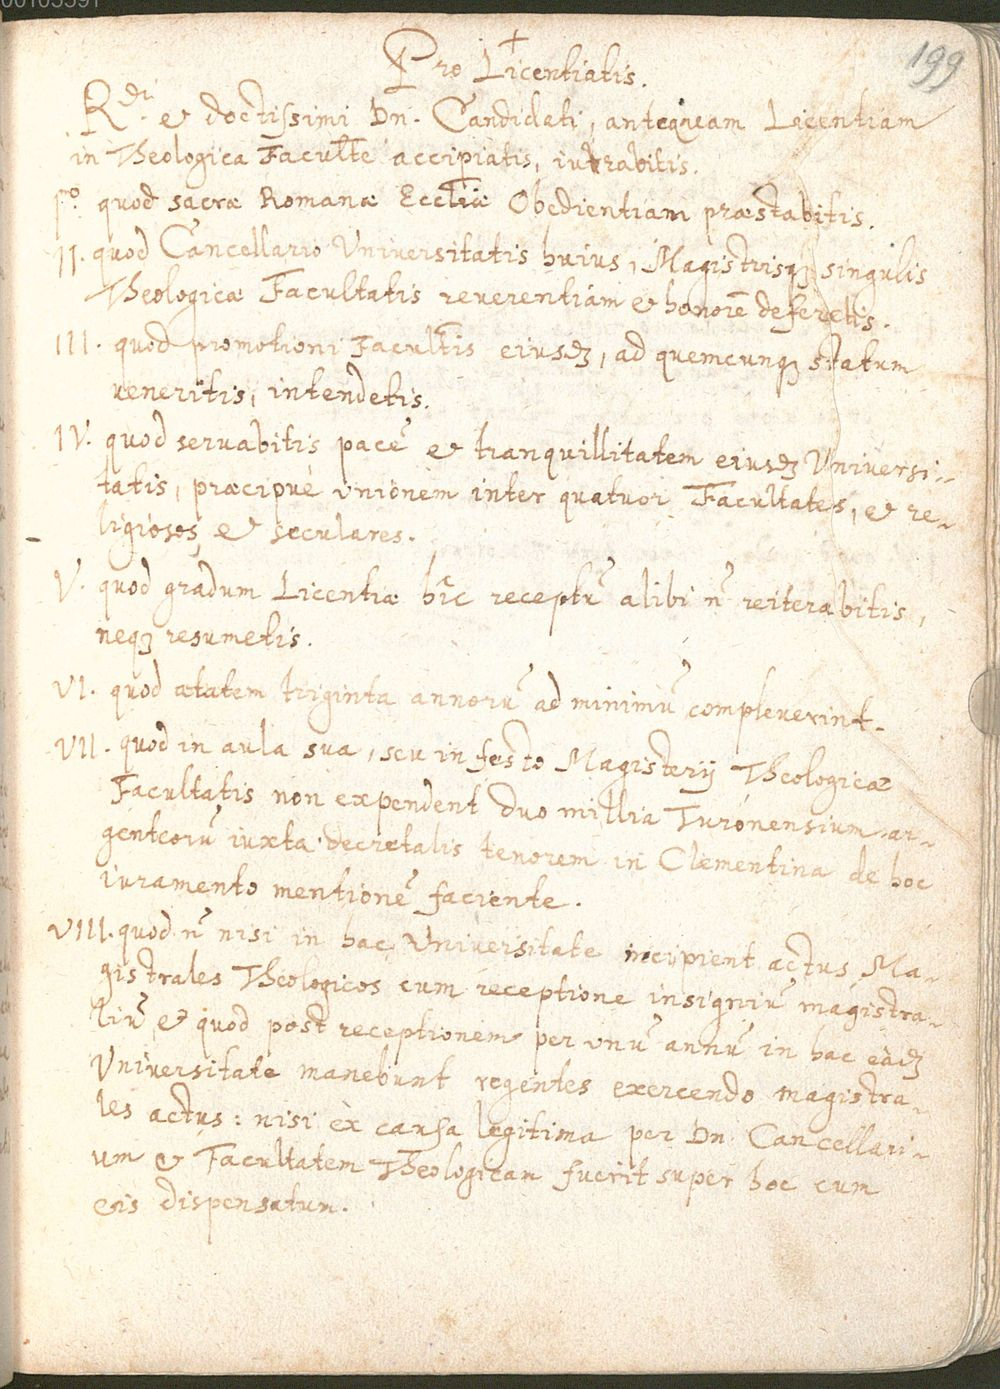 00105591
199
Pro Licentiatis.
R.di et doctissimi Dn. Candidati, antequam Licentiam
in Theologica Faculte accipiatis, iurabitis.
Pº quod sacræ Romanæ Eccliæ Obedientiam præstabitis.
II. quod Cancellario Universitatis huius, Magistrisqꝫ singulis
Theologicæ Facultatis reverentiam et honorē deferetis.
III. quod promotioni Facultis eiusdꝫ, ad quemcunqꝫ statum
veneritis, intendetis.
IV. quod servabitis pacē et tranquillitatem eiusdꝫ Universi-
tatis, præcipuè vnionem inter quatuor Facultates, et re-
ligiosos, et seculares.
V. quod gradum Licentiæ hîc receptū alibi n̄ reiterabitis,
neqꝫ resumetis.
VI. quod ætatem triginta annorū ad minimū compleverint.
VII. quod in aula sua, seu in festo Magisterij Theologicæ
Facultatis non expendent duo millia Turonensium ar-
genteorū iuxta decretalis tenorem in Clementina de hoc
iuramento mentionē faciente.
VIII. quod n̄ nisi in hac Universitate incipient actus Ma-
gistrales Theologicos cum receptione insigniū magistra-
liū et quod post receptionem per vnū annū in hac eâdꝫ
Universitate manebunt regentes exercendo magistra-
les actus: nisi ex causa legitima per Dn. Cancellari-
um et Facultatem Theologicam fuerit super hoc cum
eis dispensatum.